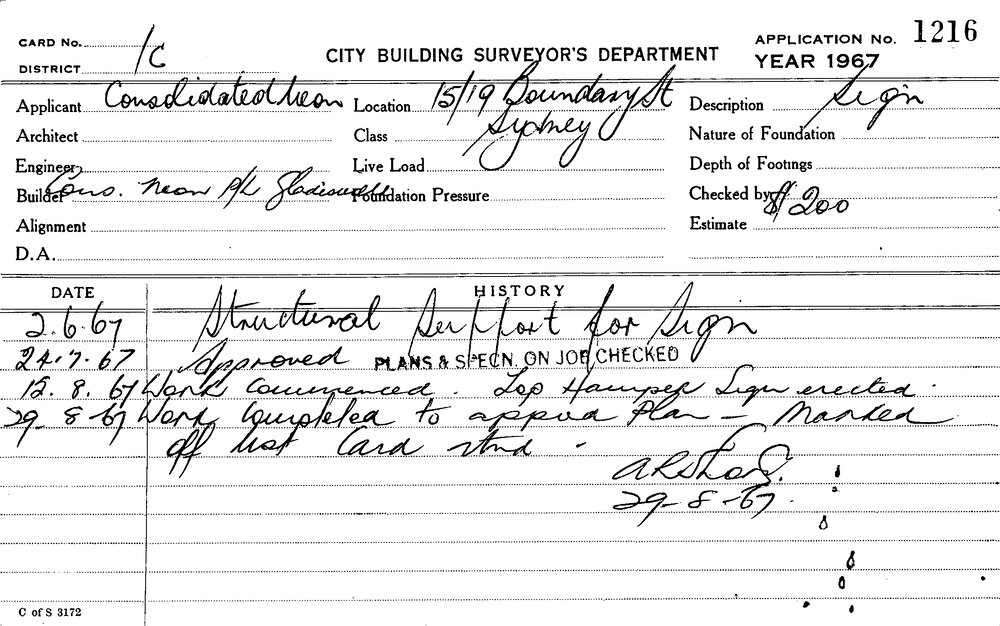 CARD No.
DISTRICT 1C
CITY BUILDING SURVEYOR'S DEPARTMENT
APPLICATION No. 1216
YEAR 1967
Applicant Consolidated Neon Location 15/19 Boundary St Description Sign
Architect Class Sydney Nature of Foundation
Engineer Live Load Depth of Footings
Builder Cons. Neon P/L Gladesville Foundation Pressure Checked by
Alignment Estimate $200
D.A.
DATE HISTORY
2.6.67 Structural Support for Sign
24.7.67 Approved PLANS & SPECN. ON JOB CHECKED
15.8.67 Work Commenced. Top Hamper Sign erected.
29-8-67 Work Completed to approved Plan - Marked
off list Card
29-8-67.
C of S 3172